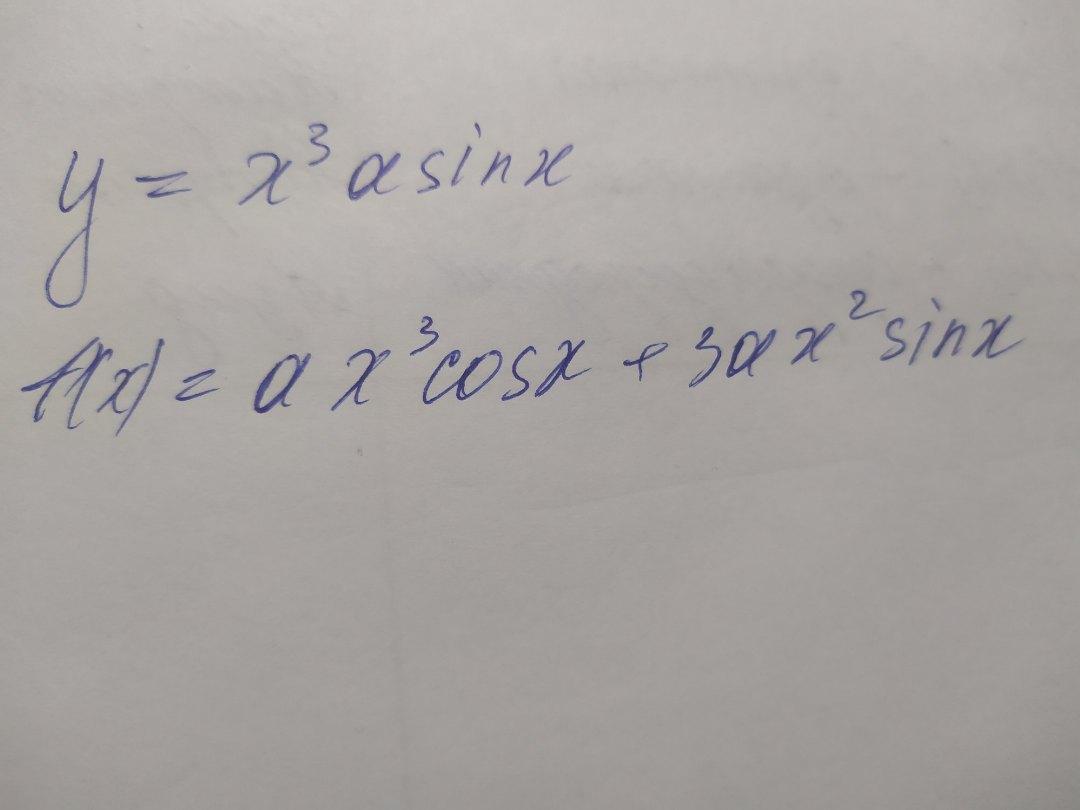 y = x³ a sinx
f(x) = a x³cosx + 3ax² sinx